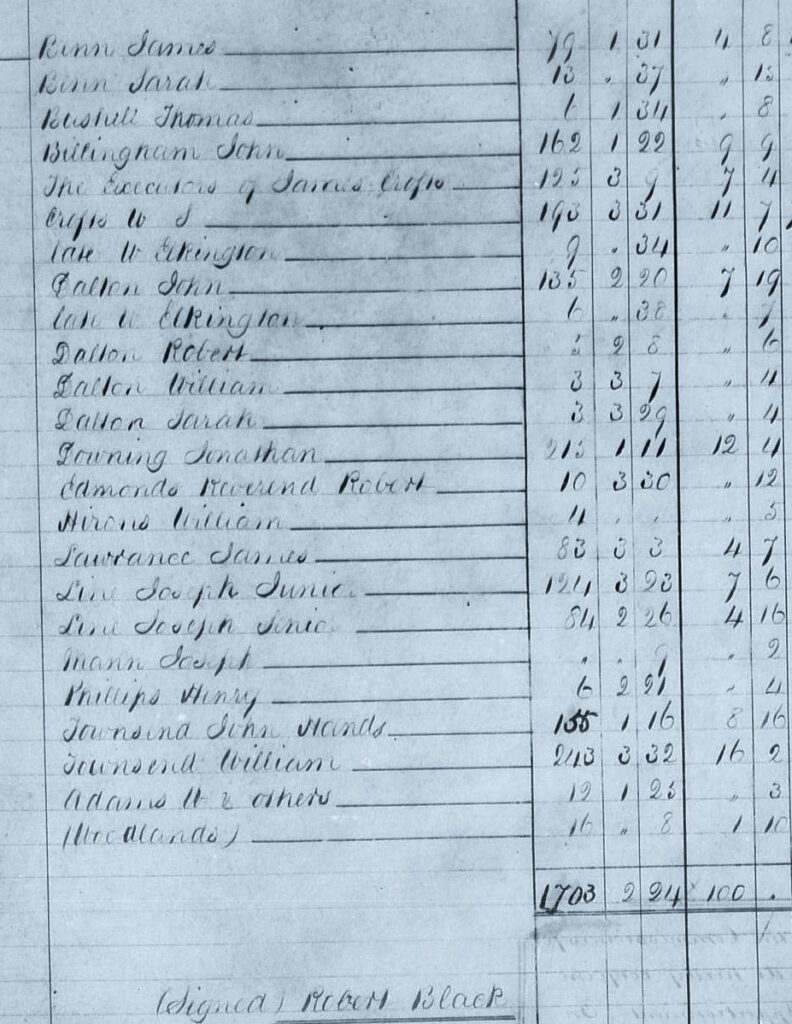 Binn James 79 1 31 4 8
Binn Sarah 13 " 37 " 13
Bushell Thomas 6 1 34 " 8
Billingham John 162 1 22 9 9
The Executors of James Crofts 125 3 9 7 4
Crofts W J 193 3 31 11 7
late W Elkington 9 " 34 " 10
Dalton John 135 2 20 7 19
late W Elkington 6 " 38 " 7
Dalton Robert 5 2 8 " 6
Dalton William 3 3 7 " 4
Dalton Sarah 3 3 29 " 4
Downing Jonathan 215 1 11 12 4
Edmonds Reverend Robert 10 3 30 " 12
Hirons William 4 " " " 5
Lawrance James 83 3 3 4 7
Line Joseph Junior 124 3 23 7 6
Line Joseph Senior 84 2 26 4 16
Mann Joseph " " 9 " 2
Phillips Henry 6 2 21 " 4
Townsend John Hands 155 1 16 8 16
Townsend William 243 3 32 16 2
Adams W & others 12 1 25 " 3
(Woodlands) 16 " 8 1 10
1703 2 24 100 .
(Signed) Robert Black